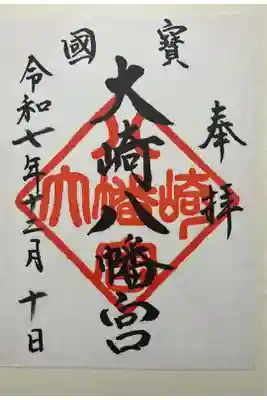 奉拝
國寶
大崎八幡宮
令和七年十二月十日